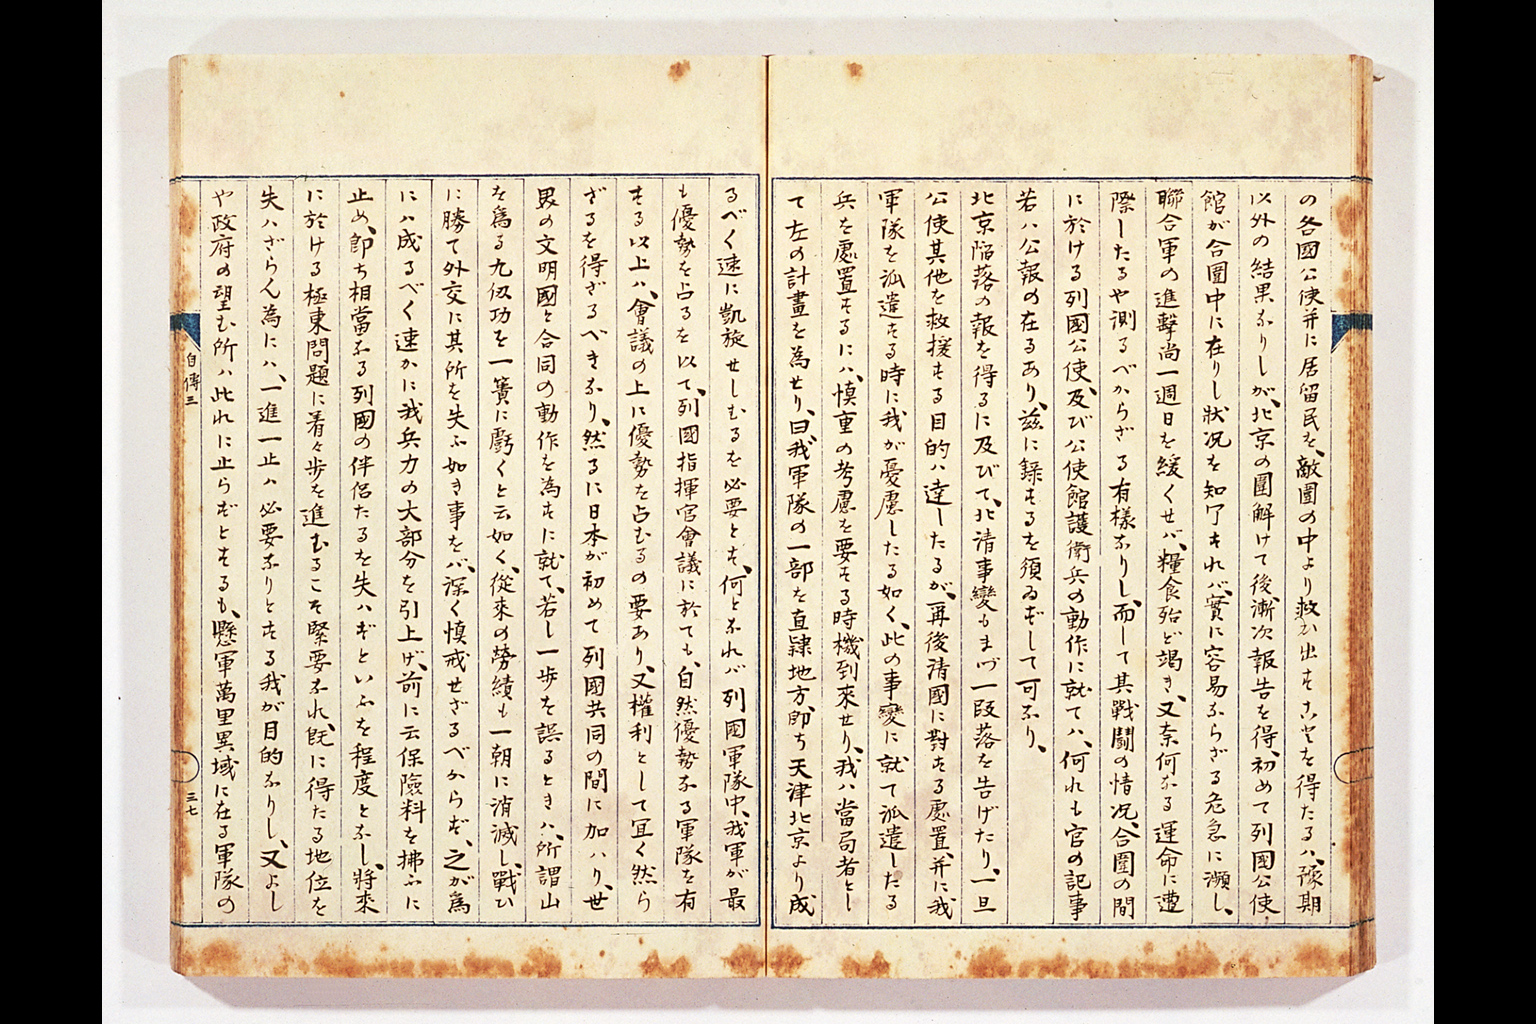 の各國公使并に居留民を、敵圍の中より救ひ出すことを得たるハ、豫期
以外の結果なりしが、北京の圍解けて後、漸次報告を得、初めて列國公使
館が合圍中に在りし狀況を知了すれバ、實に容易ならざる危急に瀕し、
聯合軍の進擊尚一週日を緩くせバ、糧食殆ど竭き、又奈何なる運命に遭
際したるや測るべからざる有樣なりし、而して其戰鬪の情况、合圍の間
に於ける列國公使、及び公使館護衞兵の動作に就てハ、何れも官の記事
若ハ公報の在るあり、玆に録するを須ゐずして可なり、
北京陷落の報を得るに及びて、北清事變もまづ一段落を告げたり、一旦
公使其他を救援する目的ハ達したるが、再後清國に對する處置、并に我
軍隊を派遣する時に我が憂慮したる如く、此の事變に就て派遣したる
兵を處置するにハ、愼重の考慮を要する時機到來せり、我ハ當局者とし
て左の計畫を為せり、曰我軍隊の一部を直隷地方、即ち天津北京より成
るべく速に凱旋せしむるを必要とす、何となれバ列國軍隊中、我軍が最
も優勢を占るを以て、列國指揮官會議に於ても、自然優勢なる軍隊を有
する以上ハ、會議の上に優勢を占むるの要あり、又權利として宜く然ら
ざるを得ざるべきなり、然るに日本が初めて列國共同の間に加ハり、世
界の文明國と合同の動作を為すに就て、若し一歩を誤るときハ、所謂山
を爲る九仭功を一簣に虧くと云如く、從來の勞績も一朝に消滅し、戰ひ
に勝て外交に其所を失ふ如き事をバ、深く愼戒せざるべからず、之が爲
にハ成るべく速かに我兵力の大部分を引上げ、前に云保險料を拂ふに
止め、即ち相當なる列國の伴侶たるを失ハずといふを程度となし、將來
に於ける極東問題に着々歩を進むるこそ緊要なれ、既に得たる地位を
失ハざらん為にハ、一進一止ハ必要なりとする我が目的なりし、又よし
や政府の望む所ハ此れに止らずとするも、懸軍萬里異域に在る軍隊の
自傳三
三七